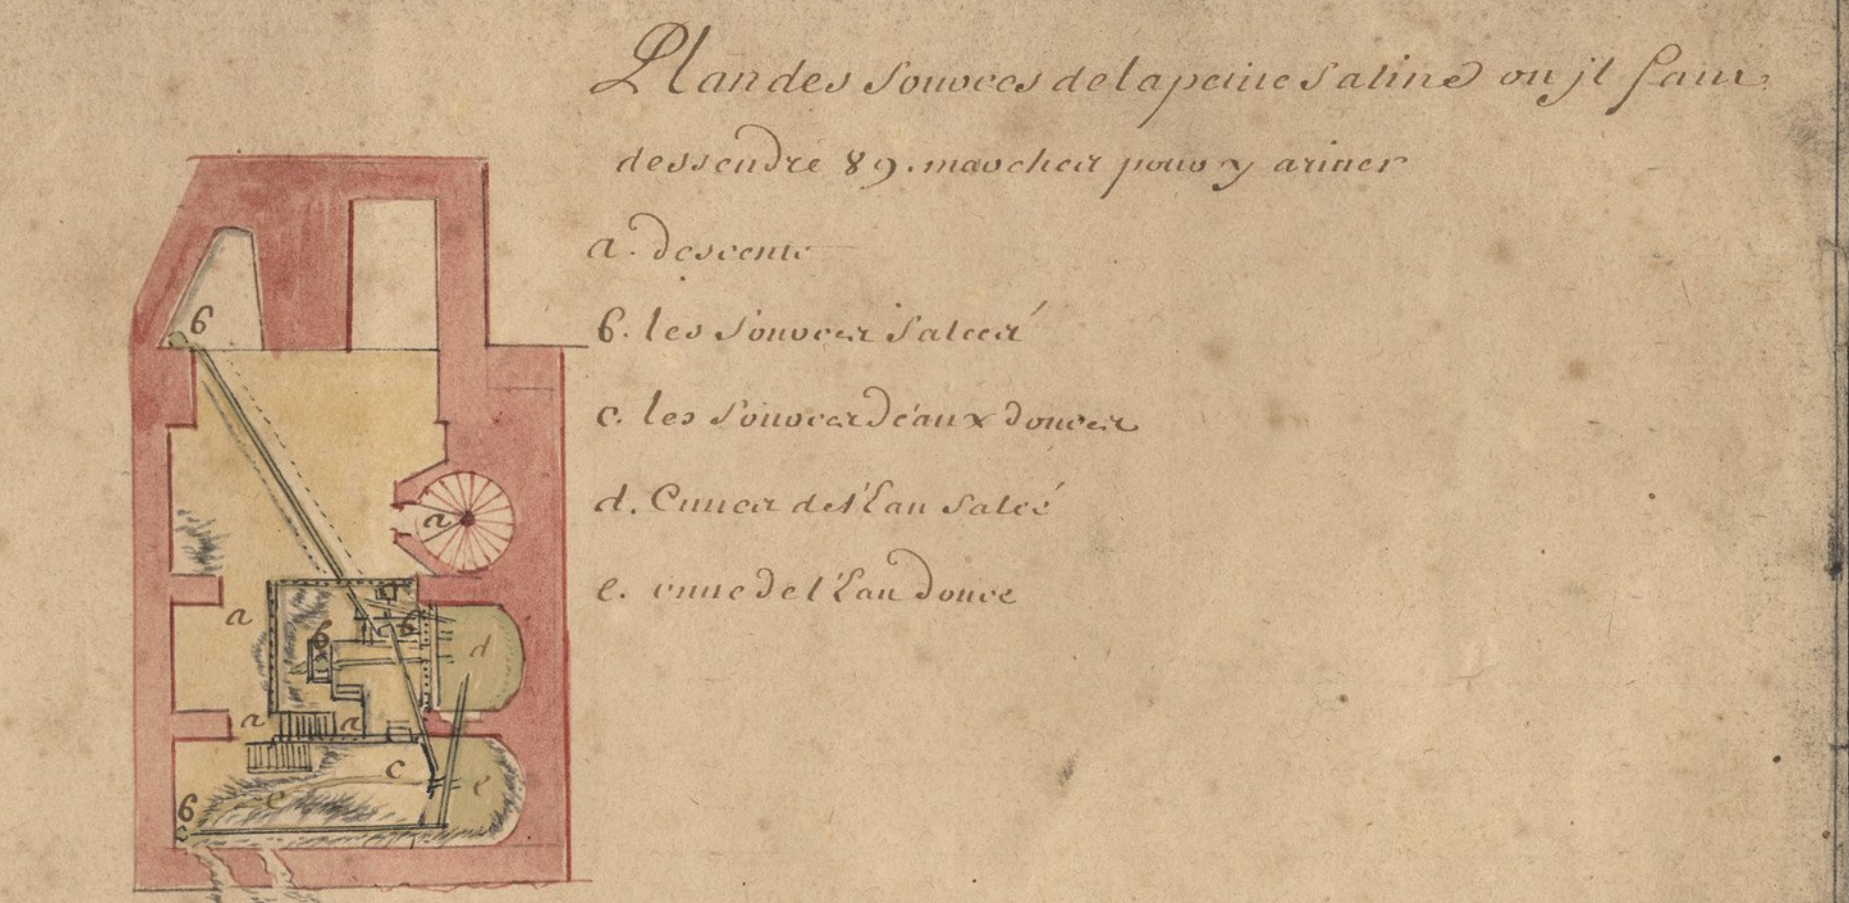 Plan des Sources de la petitte Saline ou jl faut
dessendre 89. marches pour y ariver
a. descente
b. les Sources Saleés
c. les Sources d'eaux douces
d. Cuues de l'Eau Saleé
e. cuue de l'Eau douce
b
a
a
b
b
d
a
a
c
e
e
b